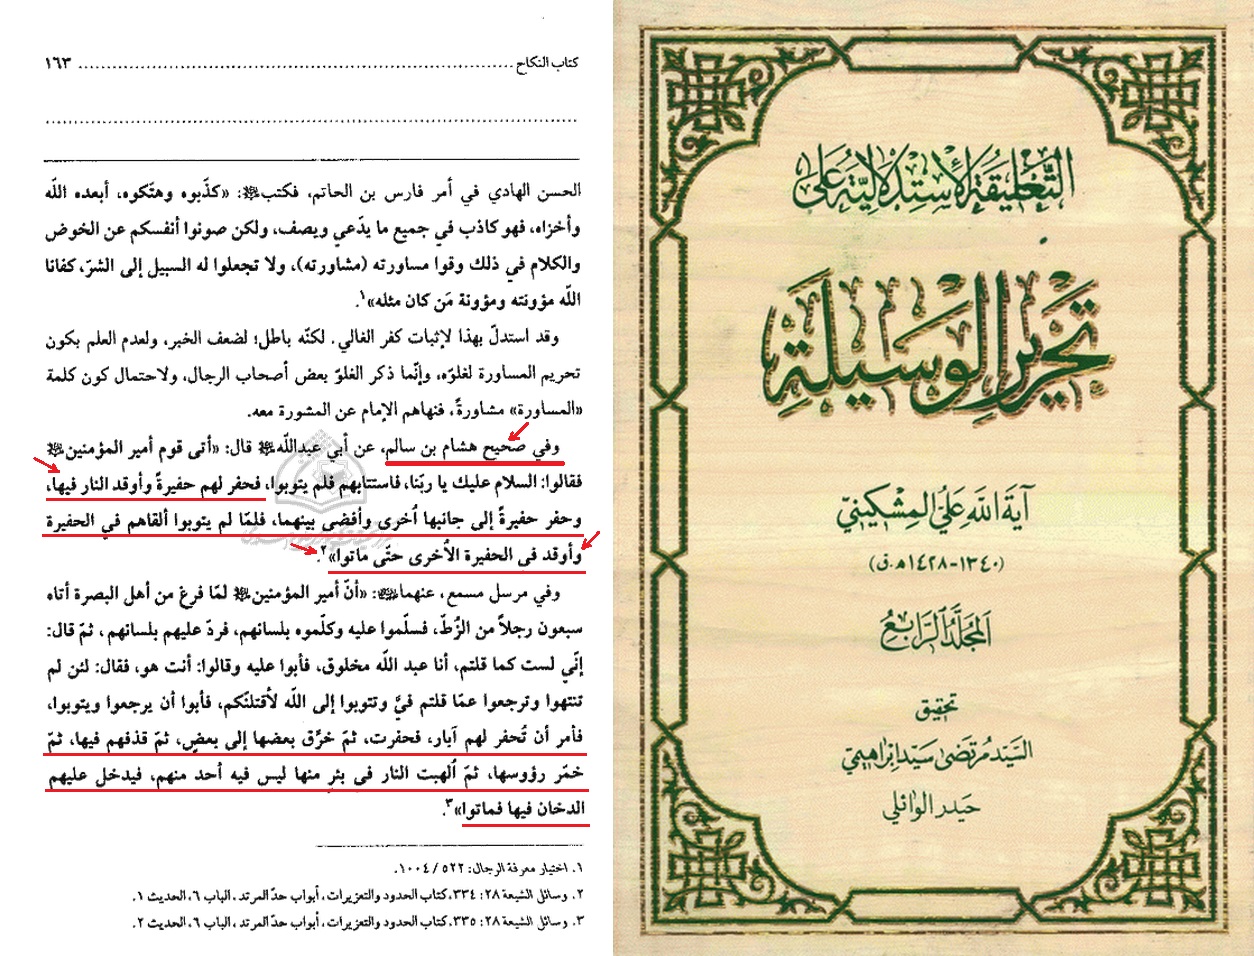 كتاب النكاح ........................................................................ ١٦٣
................................................................................
الحسن الهادي في أمر فارس بن الحاتم، فكتب﷼: «كذّبوه وهتّكوه، أبعده اللّه
وأخزاه، فهو كاذب في جميع ما يدّعي ويصف، ولكن صونوا أنفسكم عن الخوض
والكلام في ذلك وقوا مساورته (مشاورته)، ولا تجعلوا له السبيل إلى الشرّ، كفانا
اللّه مؤونته ومؤونة مَن كان مثله»١.
وقد استدلّ بهذا لإثبات كفر الغالي. لكنّه باطل؛ لضعف الخبر، ولعدم العلم بكون
تحريم المساورة لغلوّه، وإنّما ذكر الغلوّ بعض أصحاب الرجال، ولاحتمال كون كلمة
«المساورة» مشاورةً، فنهاهم الإمام عن المشورة معه.
وفي صحيح هشام بن سالم، عن أبي عبداللّه قال: «أتى قوم أمير المؤمنين
فقالوا: السلام عليك يا ربّنا، فاستتابهم فلم يتوبوا، فحفر لهم حفيرةً وأوقد النار فيها،
وحفر حفيرةً إلى جانبها اُخرى وأفضى بينهما، فلمّا لم يتوبوا ألقاهم في الحفيرة
وأوقد في الحفيرة الاُخرى حتّى ماتوا»٢.
وفي مرسل مسمع، عنهما: «أنّ أمير المؤمنين لمّا فرغ من أهل البصرة أتاه
سبعون رجلاً من الزُطّ، فسلّموا عليه وكلّموه بلسانهم، فردّ عليهم بلسانهم، ثمّ قال:
إنّي لست كما قلتم، أنا عبد اللّه مخلوق، فأبوا عليه وقالوا: أنت هو، فقال: لئن لم
تنتهوا وترجعوا عمّا قلتم فيَّ وتتوبوا إلى اللّه لأقتلنّكم، فأبوا أن يرجعوا ويتوبوا،
فأمر أن تُحفر لهم آبار، فحفرت، ثمّ خرَّق بعضها إلى بعض، ثمّ قذفهم فيها، ثمّ
خمّر رؤوسها، ثمّ اُلهبت النار في بئرٍ منها ليس فيه أحد منهم، فيدخل عليهم
الدخان فيها فماتوا»٣.
١. اختيار معرفة الرجال: ٥٢٢ / ١٠٠٤.
٢. وسائل الشيعة ٢٨: ٣٣٤، كتاب الحدود والتعزيرات، أبواب حدّ المرتد، الباب ٦، الحديث ١.
٣. وسائل الشيعة ٢٨: ٣٣٥، كتاب الحدود والتعزيرات، أبواب حدّ المرتد، الباب ٦، الحديث ٢.
التعليقة الاستدلالية على
تحرير الوسيلة
آية الله علي المشكيني
(١٣٤٠-١٤٢٨ه‍.ق)
المجلد الرابع
تحقيق
السيد مرتضى سيد ابراهيمي
حيدر الوائلي